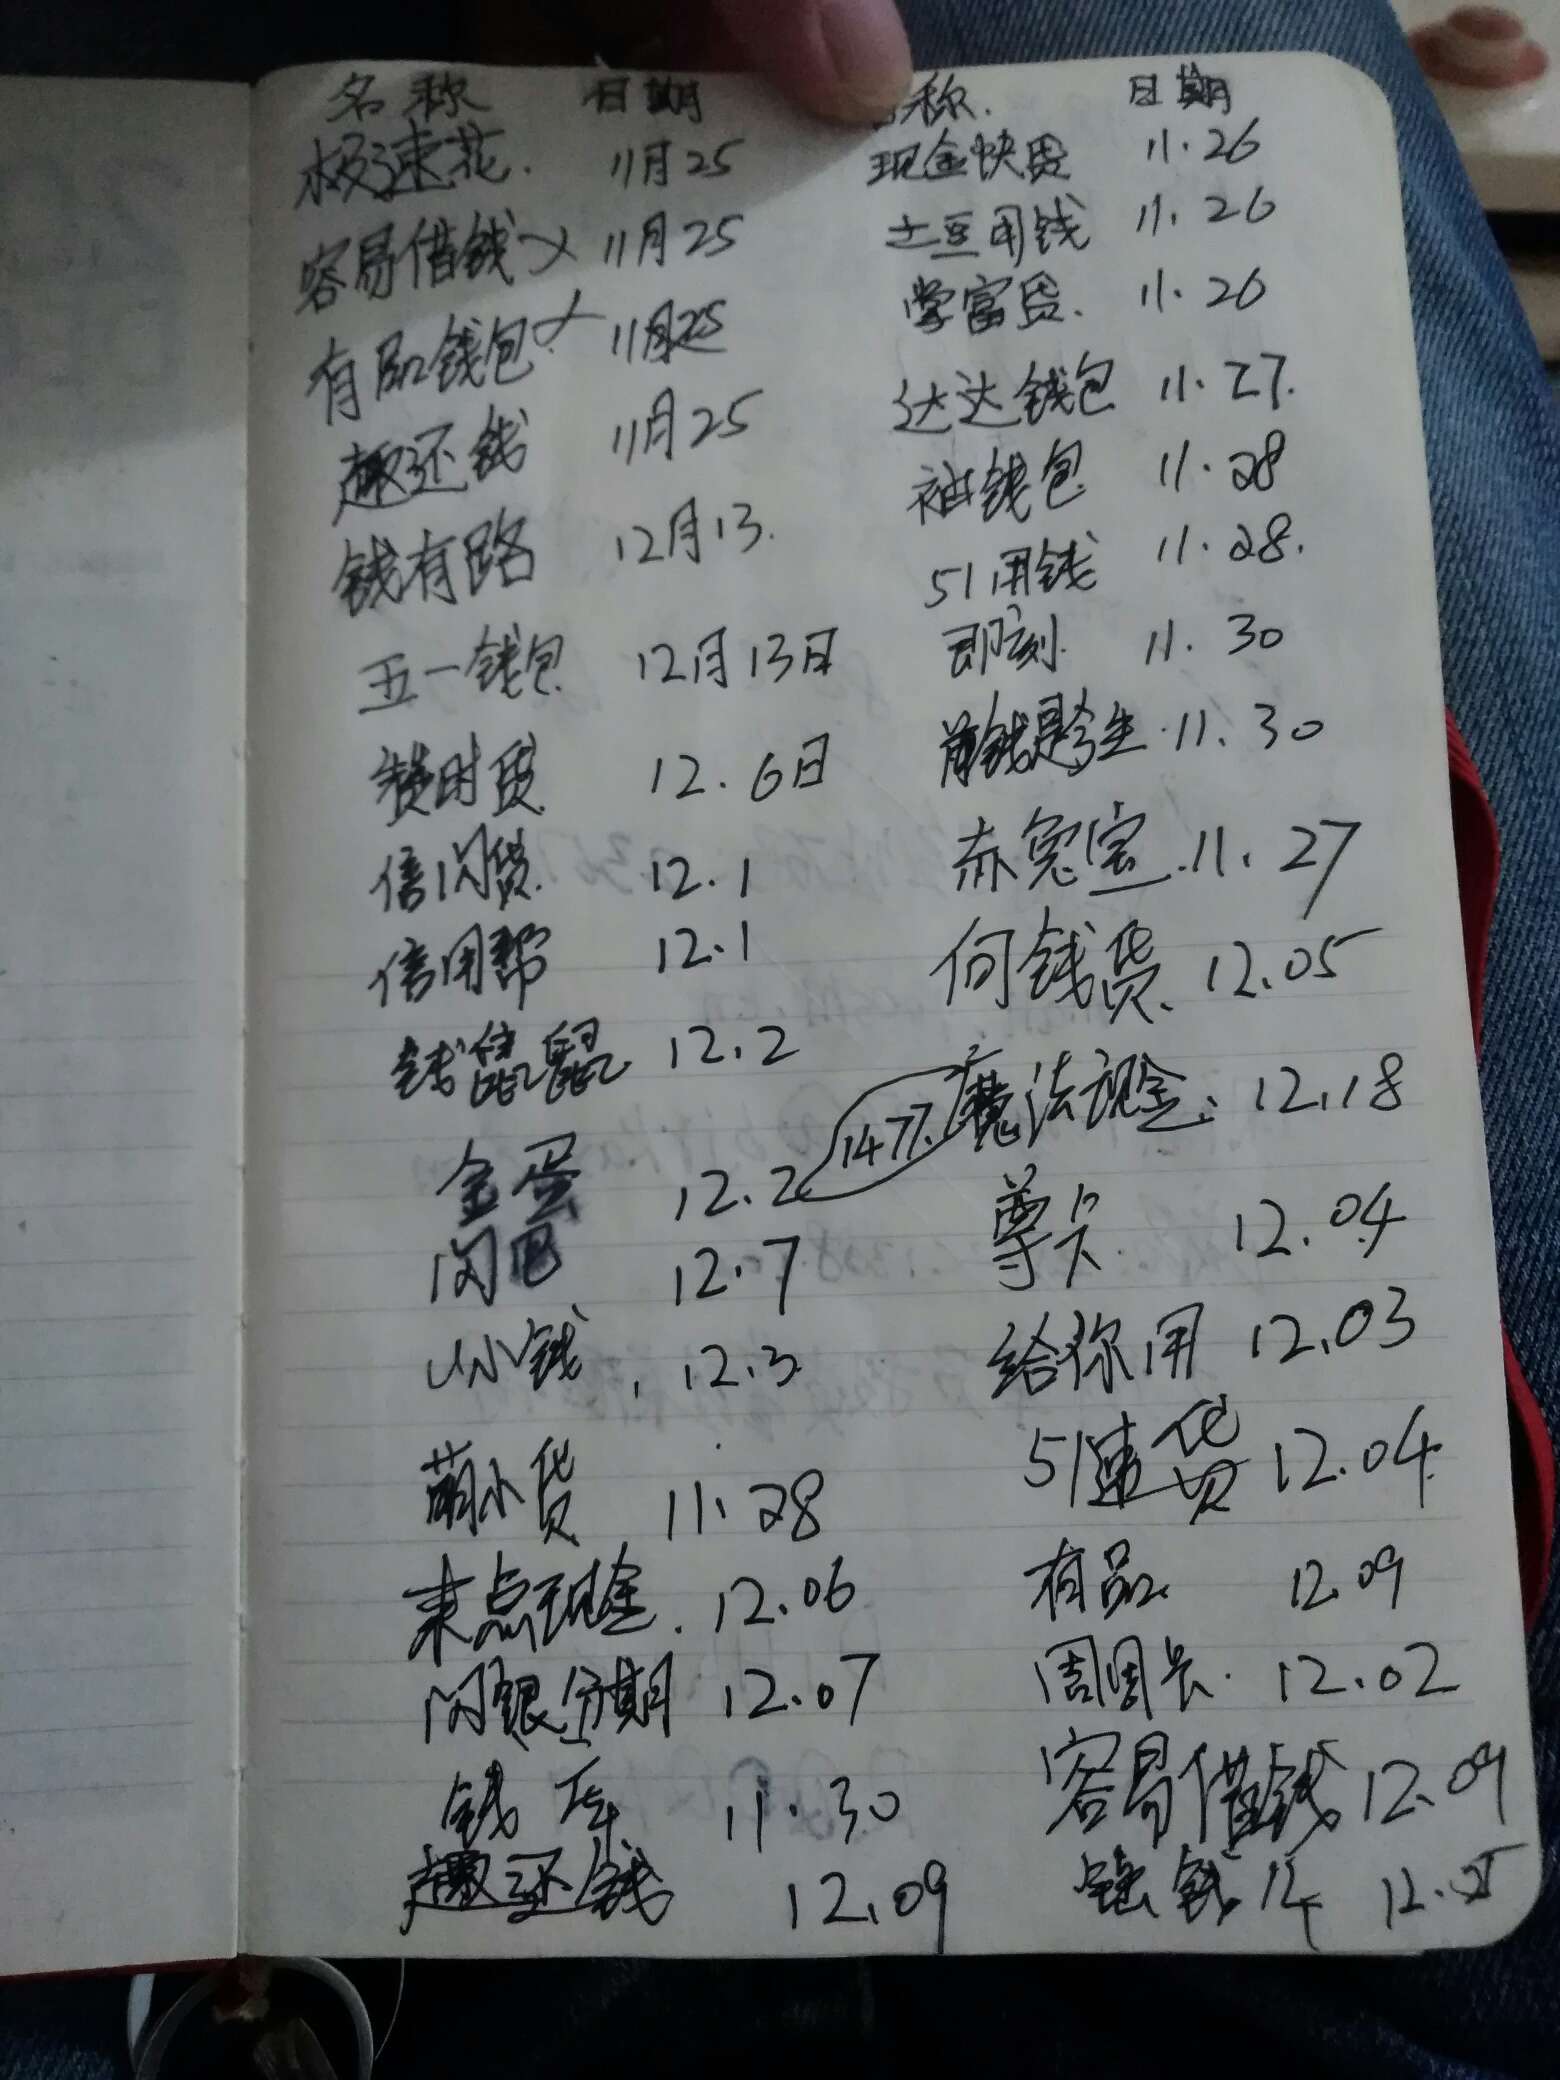 名称 日期 名称 日期
极速花 11月25 现金快贷 11.26
容易借钱 11月25 土豆用钱 11.26
有品钱包 11月25 掌富贷 11.26
趣还钱 11月25 达达钱包 11.27
钱有路 12月13 袖钱包 11.28
51用钱 11.28
五一钱包 12月13日 即刻 11.30
时贷 12.6日 钱 生 11.30
信闪贷 12.1 赤兔宝 11.27
信用帮 12.1 向钱贷 12.05
钱 鼠 12.2 魔法现金 12.18
1477
金蛋 12.2 尊卡 12.04
闪电 12.7 给你用 12.03
U小钱 12.3 51速贷 12.04
萌小货 11.28 有品 12.09
来点现金 12.06 周周长 12.02
闪银分期 12.07 容易借钱 12.09
钱库 11.30 钱 12.05
趣还钱 12.09